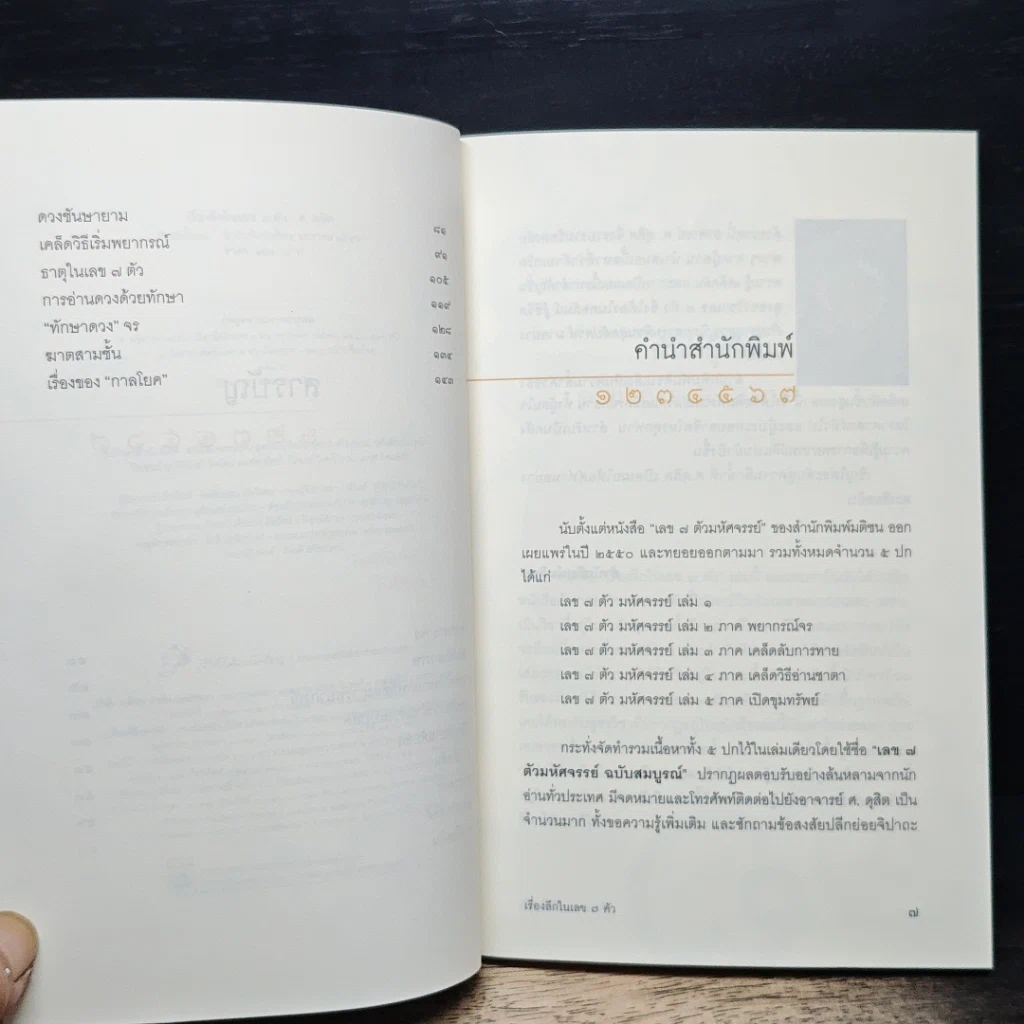 ดวงชันษายาม ๘๑
เคล็ดวิธีเริ่มพยากรณ์ ๙๑
ธาตุในเลข ๗ ตัว ๑๐๕
การอ่านดวงด้วยทักษา ๑๑๙
“ทักษาดวง” จร ๑๒๘
ฆาตสามชั้น ๑๓๔
เรื่องของ “กาลโยค” ๑๔๓
คำนำสำนักพิมพ์
๑ ๒ ๓ ๔ ๕ ๖ ๗
นับตั้งแต่หนังสือ “เลข ๗ ตัวมหัศจรรย์” ของสำนักพิมพ์มติชน ออก
เผยแพร่ในปี ๒๕๕๐ และทยอยออกตามมา รวมทั้งหมดจำนวน ๕ ปก
ได้แก่
เลข ๗ ตัว มหัศจรรย์ เล่ม ๑
เลข ๗ ตัว มหัศจรรย์ เล่ม ๒ ภาค พยากรณ์จร
เลข ๗ ตัว มหัศจรรย์ เล่ม ๓ ภาค เคล็ดลับการทาย
เลข ๗ ตัว มหัศจรรย์ เล่ม ๔ ภาค เคล็ดวิธีอ่านชาตา
เลข ๗ ตัว มหัศจรรย์ เล่ม ๕ ภาค เปิดขุมทรัพย์
กระทั่งจัดทำรวมเนื้อหาทั้ง ๕ ปกไว้ในเล่มเดียวโดยใช้ชื่อ “เลข ๗
ตัวมหัศจรรย์ ฉบับสมบูรณ์” ปรากฏผลตอบรับอย่างล้นหลามจากนัก
อ่านทั่วประเทศ มีจดหมายและโทรศัพท์ติดต่อไปยังอาจารย์ ศ. ดุสิต เป็น
จำนวนมาก ทั้งขอความรู้เพิ่มเติม และซักถามข้อสงสัยปลีกย่อยจิปาถะ
เรื่องลึกในเลข ๗ ตัว
๗